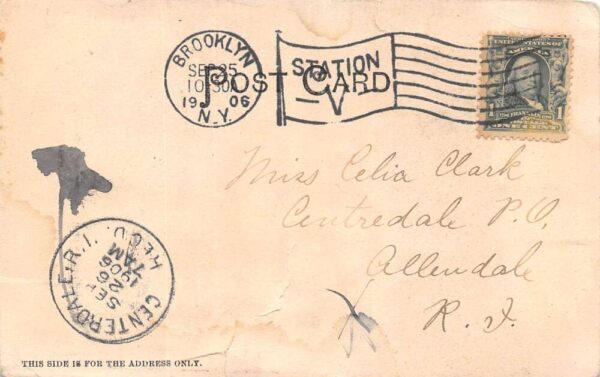 BROOKLYN
SEP 25
10-30A
1906
N.Y.
STATION
V
POST CARD
ONE CENT
1
Miss Celia Clark
Centredale P.O.
Allendale
R. I.
CENTERDALE, R.I.
SEP
26
7AM
1906
REC'D.
THIS SIDE IS FOR THE ADDRESS ONLY.